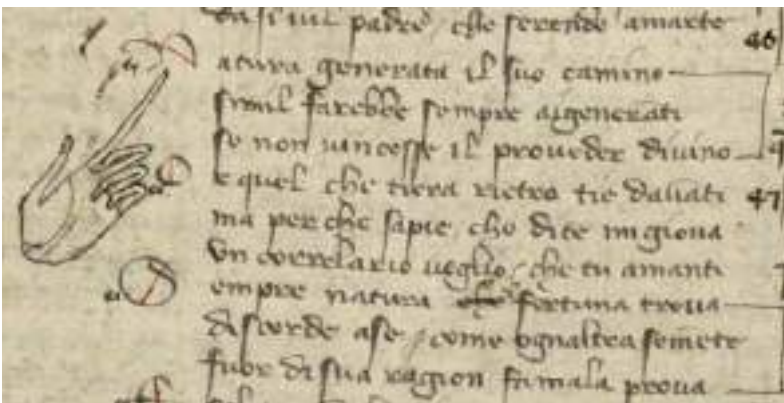 da simil padre che scrende amarte 46
atura generata il suo camino
simil farebbe sempre aigenerati
se non vincesse il proveder divino
e quel che tiera rietro tie davati 47
ma per che sapie cho di te mi giova
un correlario voglio che tu amanti
empre natura fortuna trova
discorde a se come ognaltra semete
fuor di sua ragion fa mala prova